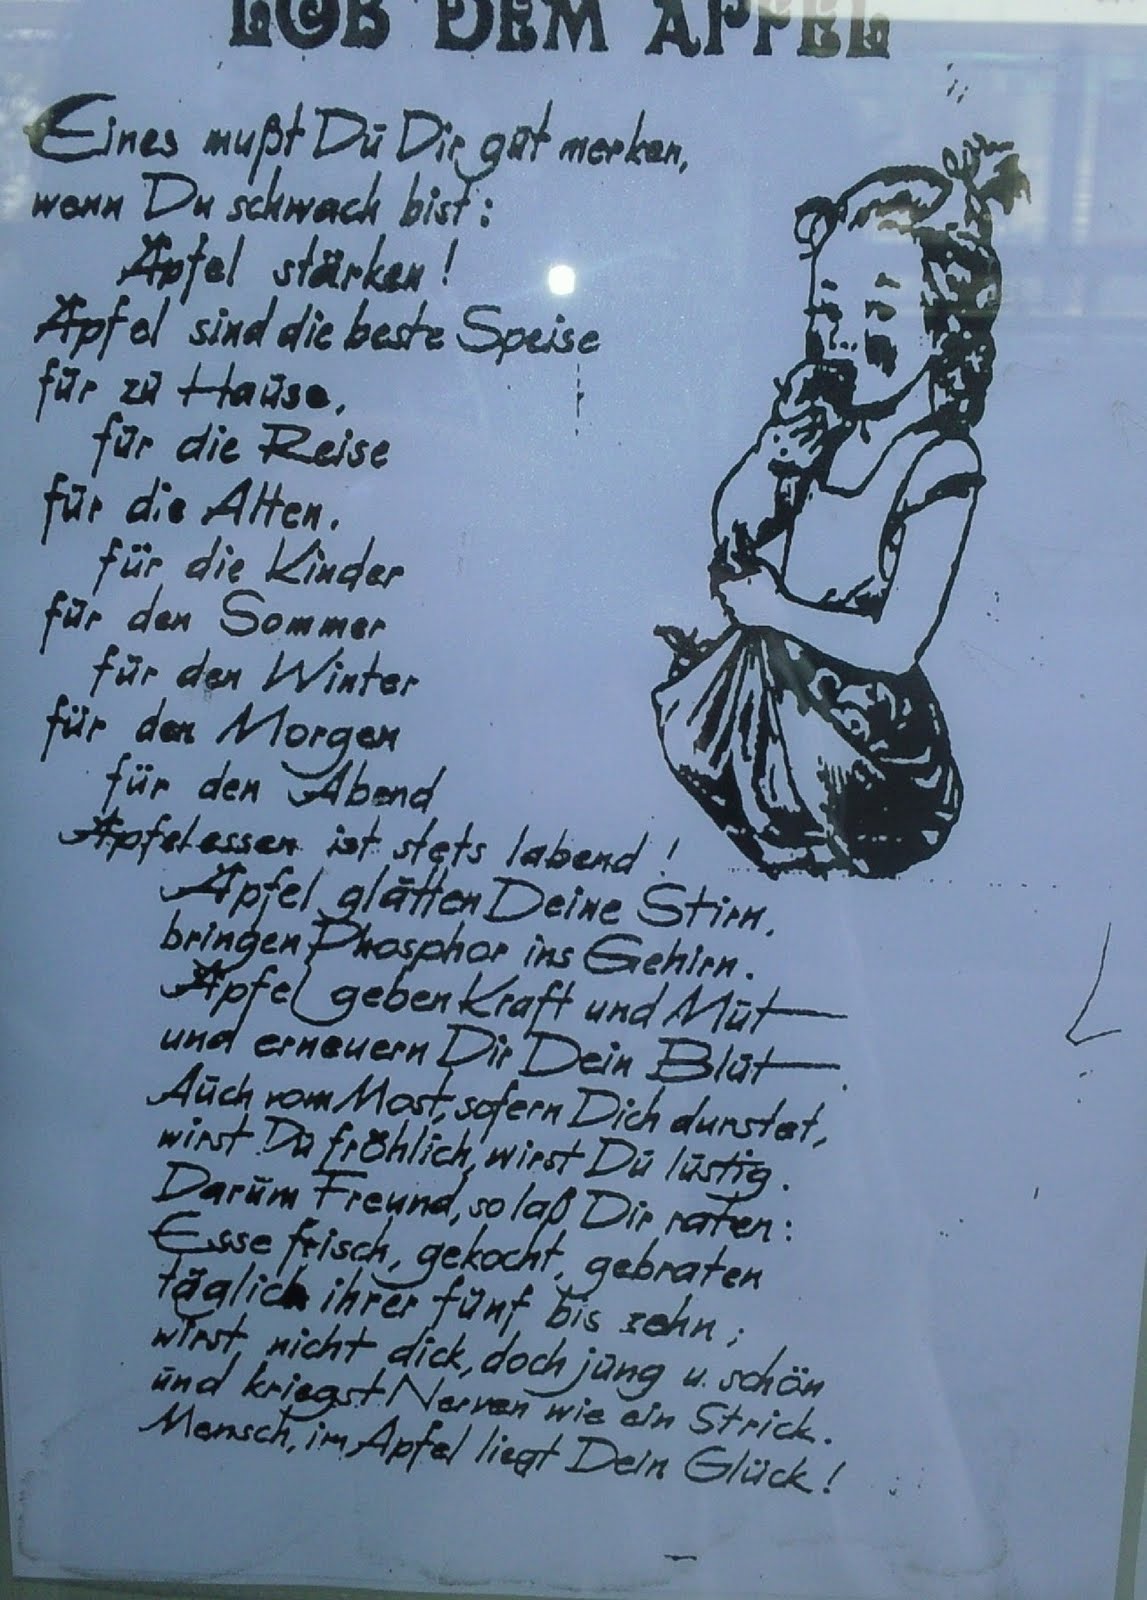 LOB DEM APFEL
Eines mußt Du Dir gut merken,
wenn Du schwach bist:
Äpfel stärken!
Äpfel sind die beste Speise
für zu Hause,
für die Reise
für die Alten,
für die Kinder
für den Sommer
für den Winter
für den Morgen
für den Abend
Äpfelessen ist stets labend!
Äpfel glätten Deine Stirn,
bringen Phosphor ins Gehirn.
Äpfel geben Kraft und Mut
und erneuern Dir Dein Blut.
Auch vom Most, sofern Dich durstet,
wirst Du fröhlich, wirst Du lustig.
Darum Freund, so laß Dir raten:
Esse frisch, gekocht, gebraten
täglich ihrer fünf bis zehn;
wirst nicht dick, doch jung u. schön
und kriegst Nerven wie ein Strick.
Mensch, im Apfel liegt Dein Glück!